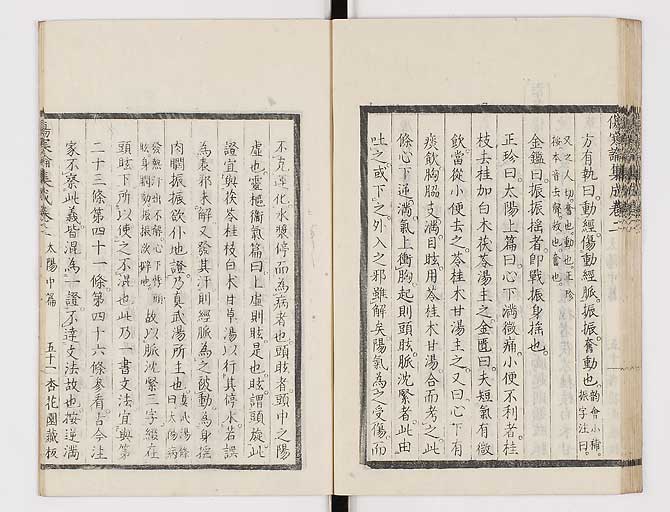 傷寒論集成卷二
方有執曰。動經傷動經脈。振振奮動也。韵會小補。振字注曰。
又之人切。奮也。動也。正珍
按本音去聲。故也。奮也。
金鑑曰。振振搖者。卽戰振身搖也。
正珍曰。太陽上篇曰。心下滿微痛。小便不利者。桂
枝去桂加白木茯苓湯主之。金匱曰。夫短氣有微
飲。當從小便去之。苓桂木甘湯主之。又曰。心下有
痰飲。胸脇支滿。目眩。用苓桂木甘湯。合而考之。此
條心下逆滿。氣上衝胸。起則頭眩。脈沈緊者。此由
吐之或下之。外入之邪雖解矣。陽氣爲之受傷。而
不克運化。水漿停而爲病者也。頭眩者。頭中之陽
虛也。靈樞衞氣篇曰。上虛則眩是也。眩謂頭旋。此
證宜與茯苓桂枝白木甘草湯。以行其停水。若誤
爲表邪未解。又發其汗。則經脈爲之敝動。爲身搖
肉瞤。振振欲仆地證。乃眞武湯所主也。眞武湯條曰。太陽病
發熱汗出不解。心下悸。頭
眩身瞤動。振振欲擗也。故以脈沈緊三字。綴在
頭眩下。所以使之不混也。此乃一書文法。宜與第
二十三條。第四十一條。第四十六條參看。古今注
家不察此義。皆混爲一證。不達文法故也。按逆滿
傷寒論集成卷之二 太陽中篇 五十一 杏花園藏板